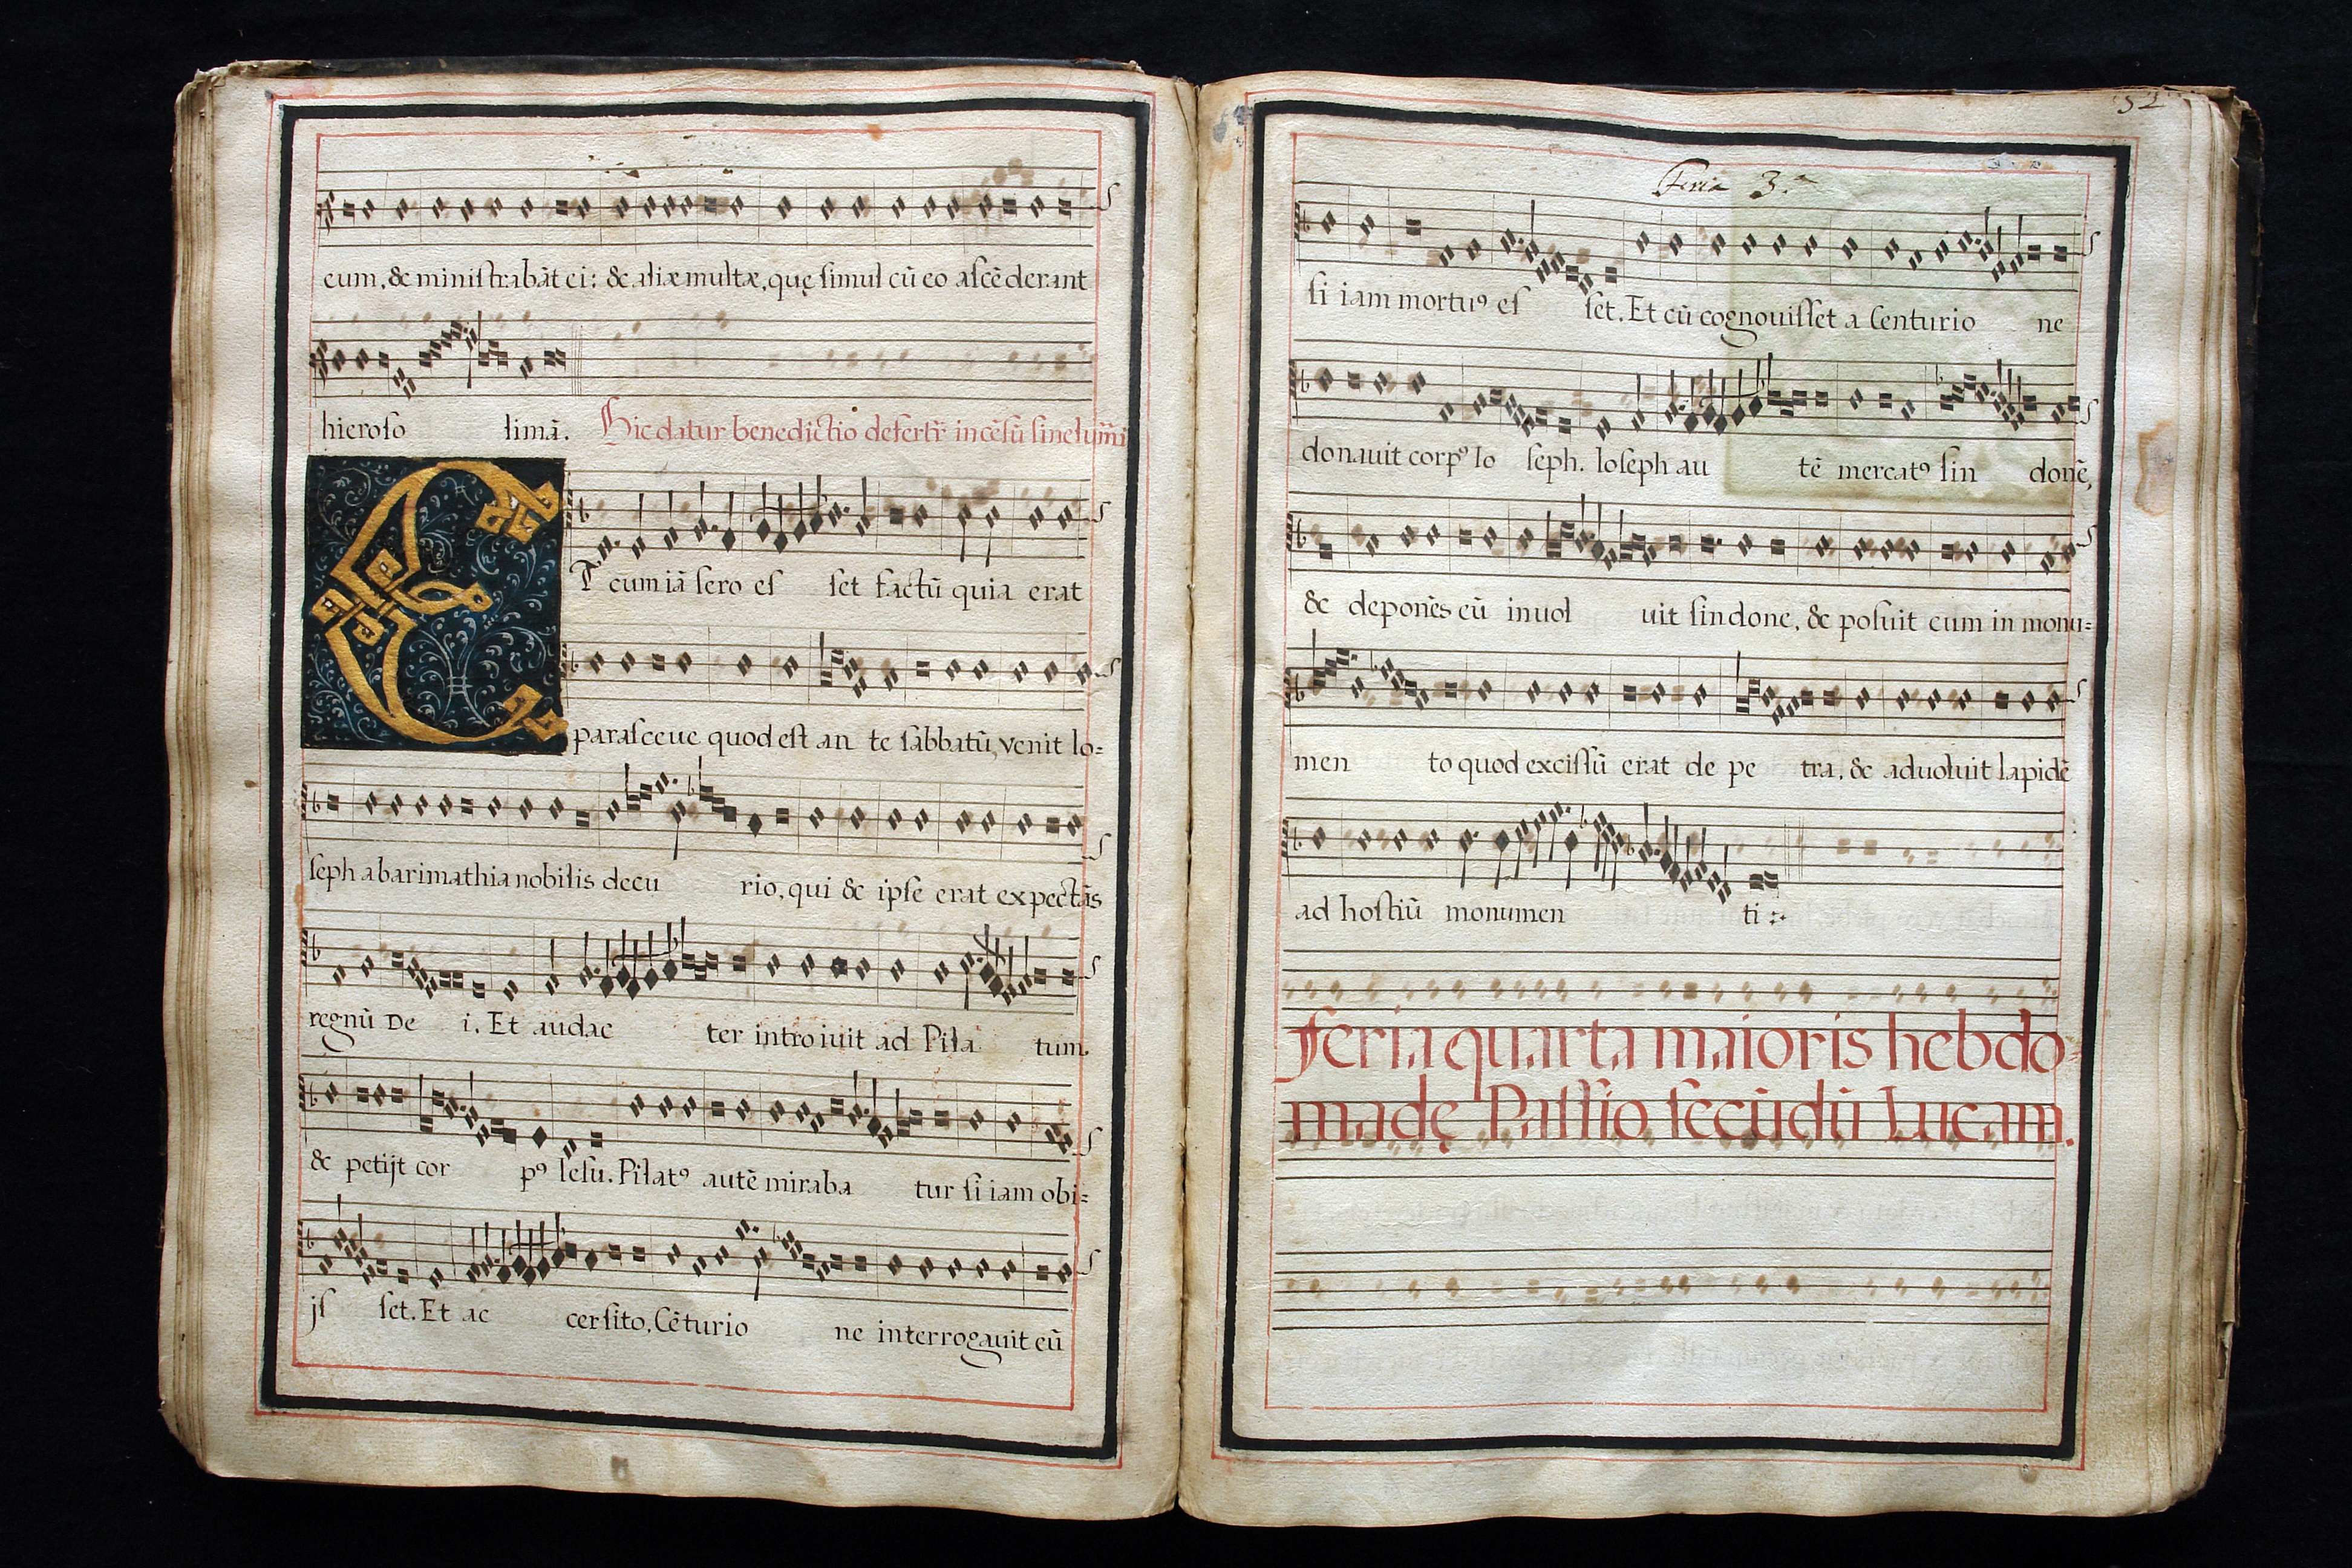 cum, & miniſtrabāt ei: & aliæ multæ, quę ſimul cū eo aſcē derant
hieroſo limā. Hic datur benedictio defertr̄ incēſū ſine lum̄i
ET cum iā ſero eſ ſet factū quia erat
paraſceue quod eſt an te ſabbatū, venit Io=
ſeph ab arimathia nobilis decu rio, qui & ipſe erat expectās
regnū De i. Et audac ter introiuit ad Pila tum.
& petijt cor pꝰ Ieſu. Pilatꝰ autē miraba tur ſi iam obi=
jſ ſet. Et ac cerſito, Cēturio ne interrogauit eū
52
Feria 3.ª
ſi iam mortuꝰ eſ ſet. Et cū cognouiſſet a Centurio ne
donauit corpꝰ Io ſeph. Ioſeph au tē mercatꝰ ſin donē,
& deponēs eū inuol uit ſindone, & poſuit eum in monu=
men to quod exciſſū erat de pe tra, & aduoluit lapidē
ad hoſtiū monumen ti
feria quarta maioris hebdo=
madę Paſſio ſecūdū Lucam.